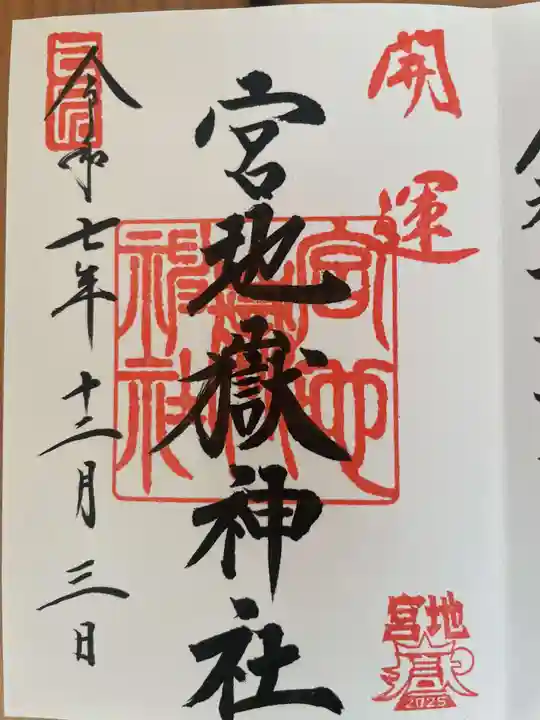 開運
宮地嶽神社
令和七年十二月三日
宮地
嶽
2025
宮地嶽神社